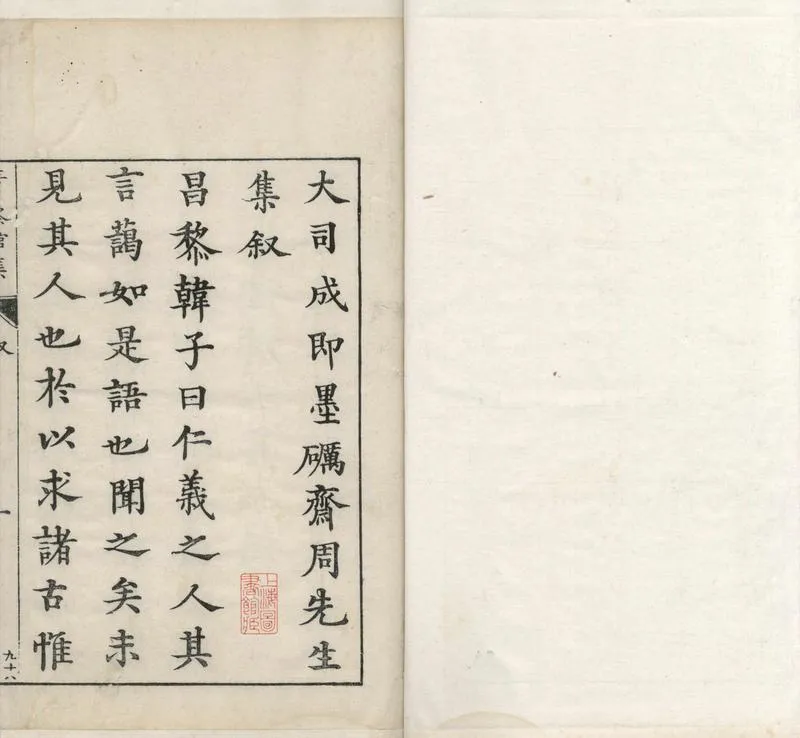 大司成即墨礪齋周先生
集叙
昌黎韓子曰仁義之人其
言藹如是語也聞之矣未
見其人也於以求諸古惟
上海圖
書館藏
集
九十八